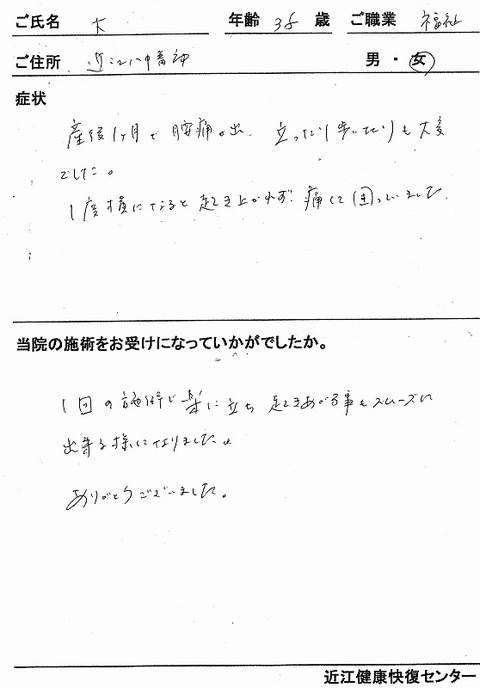 ご氏名 大 年齢 38 歳 ご職業 福祉
ご住所 近江八幡市 男・女
症状
産後1ヶ月で腰痛が出、立ったり歩いたりも大変
でした。
1度横になると起き上がれず、痛くて困っていました。
当院の施術をお受けになっていかがでしたか。
1回の施術で楽に立ち起きあがる事もスムーズに
出来る様になりました。
ありがとうございました。
近江健康快復センター